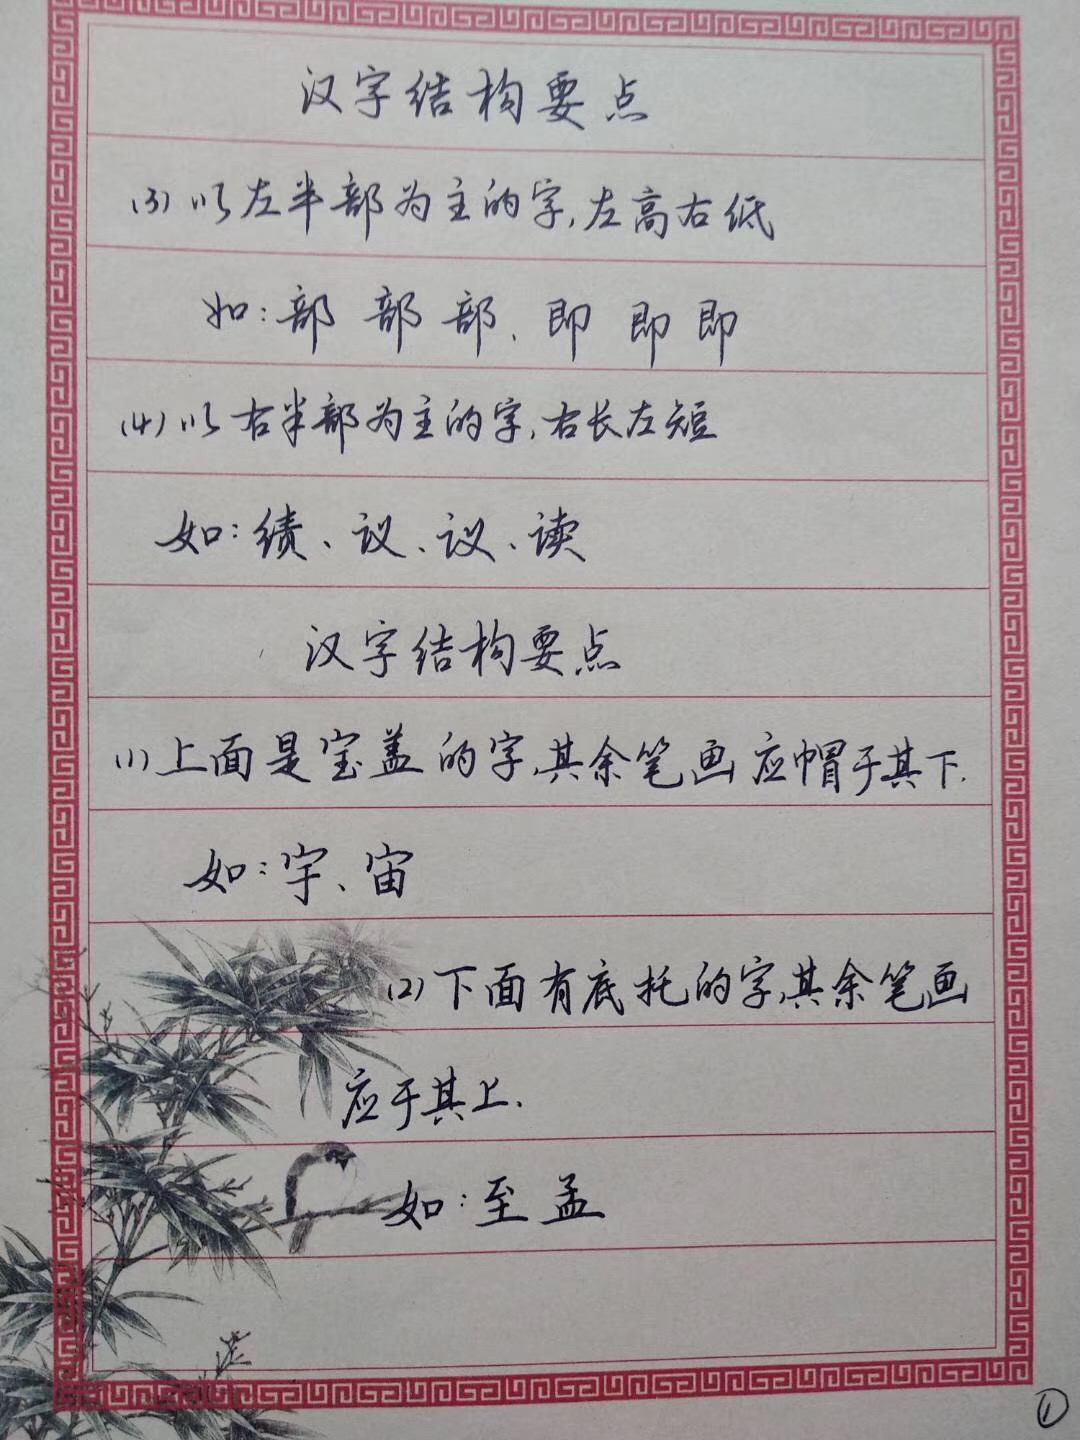 汉字结构要点
(3)以左半部为主的字,左高右低
如:部 部 部、即 即 即
(4)以右半部为主的字,右长左短
如:绩、议、议、读
汉字结构要点
(1)上面是宝盖的字,其余笔画应帽于其下.
如:宇、宙
(2)下面有底托的字,其余笔画
应于其上.
如:至 孟
①